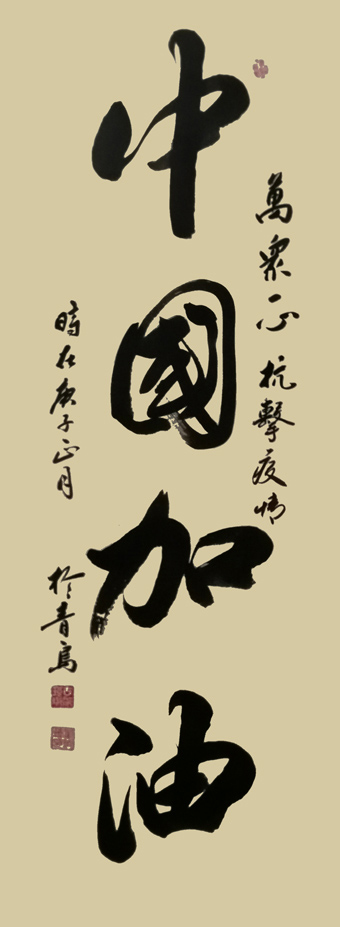 萬衆一心抗擊疫情
中國加油
時在庚子正月
於青島